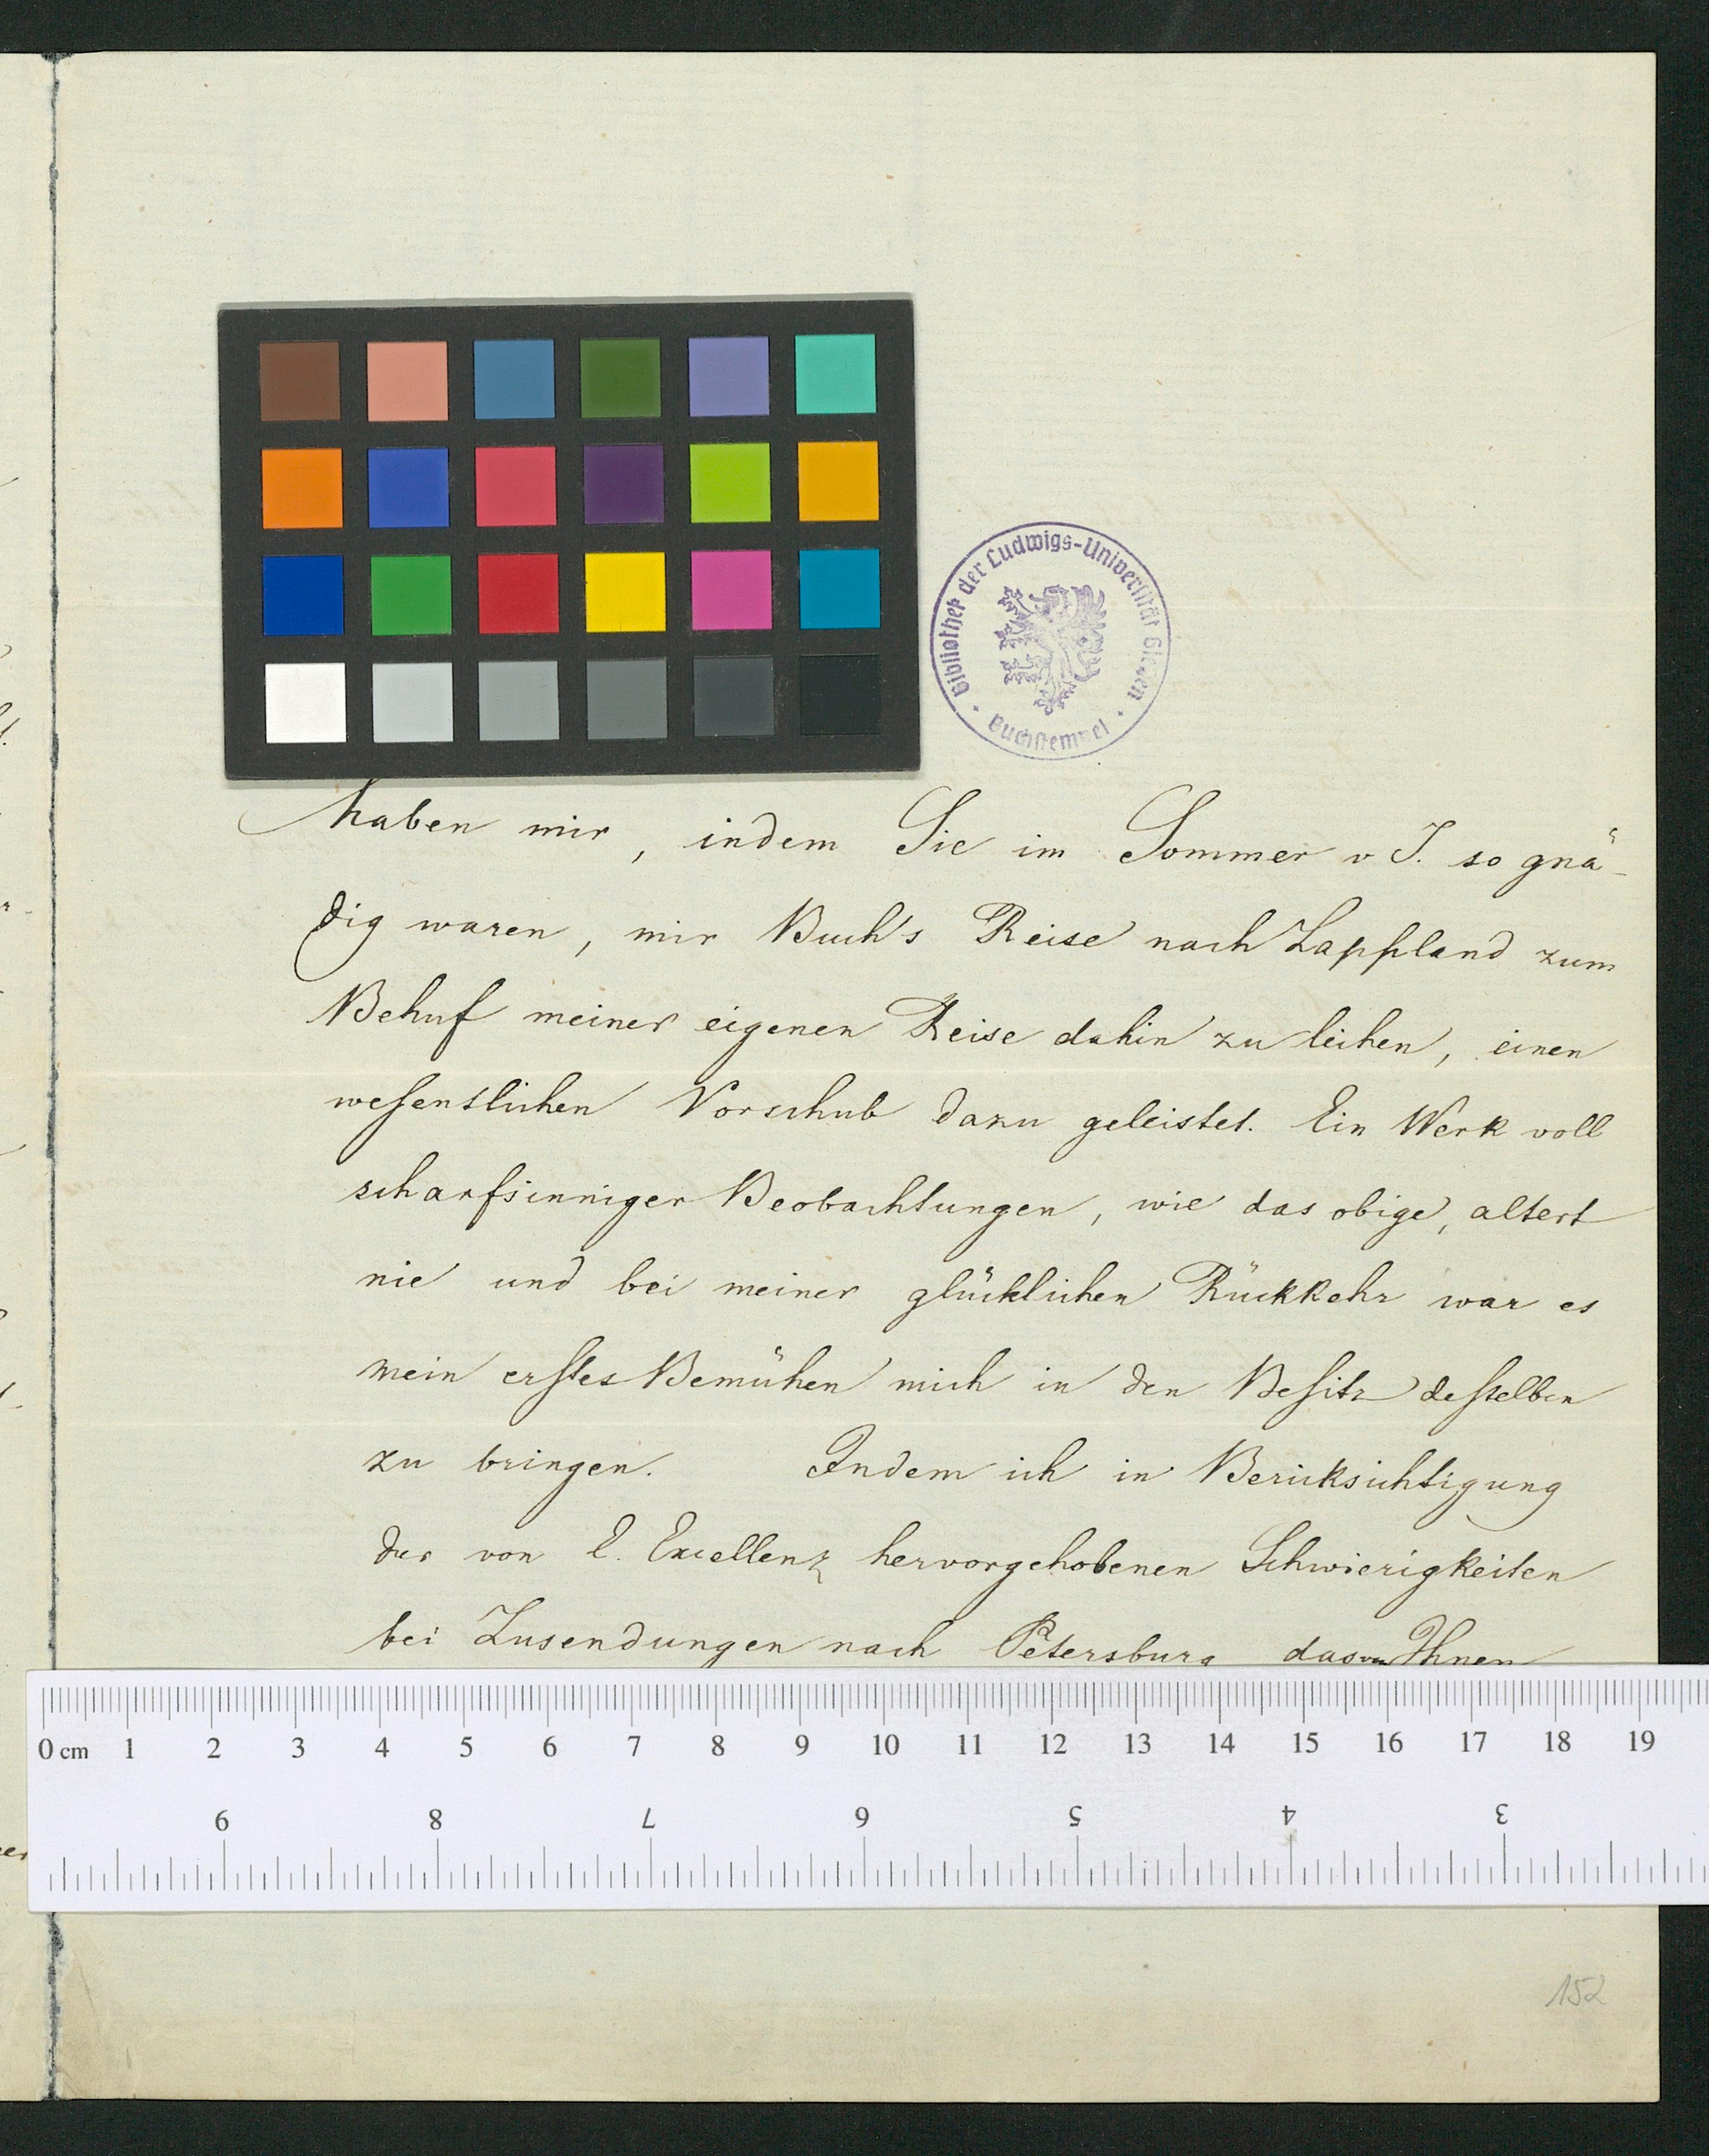 Bibliothek der Ludwigs-Universität Giessen
Buchstempel
haben mir, indem Sie im Sommer v J. so gnä-
dig waren, mir Buch's Reise nach Lappland zum
Behuf meiner eigenen Reise dahin zu leihen, einen
weſentlichen Vorschub dazu geleistet. Ein Werk voll
scharfsinniger Beobachtungen, wie das obige, altert
nie und bei meiner glücklichen Rückkehr war es
mein erſtes Bemühen mich in den Beſitz deſselben
zu bringen. Indem ich in Berücksichtigung
der von E. Excellenz hervorgehobenen Schwierigkeiten
bei Zusendungen nach Petersburg das von Ihnen
0 cm 1 2 3 4 5 6 7 8 9 10 11 12 13 14 15 16 17 18 19
9 8 7 6 5 4 3
152